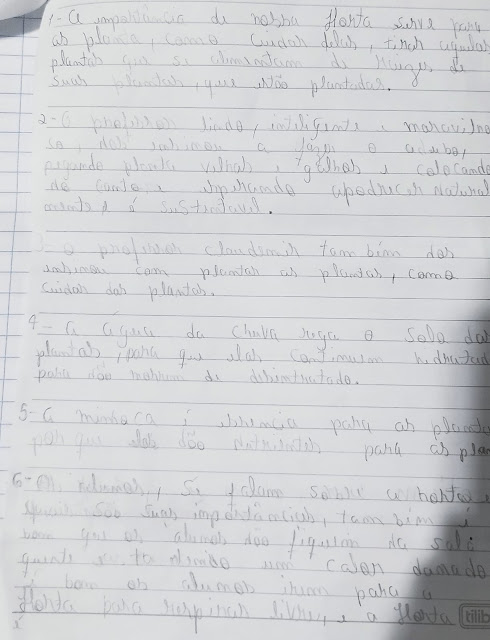 1- A importância de nossa Horta serve para
as planta, como cuidar delas, tirar aquelas
plantas que se alimentam de de
suas plantas, que estão plantadas.
2- O professor lindo, inteligente e maravilho
so, nos insinou a fazer o adubo,
pegando planta velhas, galhos e colocando
no canto e esperando apodrecer natural
mente e é sustentavel.
3- o professor claudemir tam bém dos
insinou com plantar as plantas, como
cuidar das plantas.
4- A água da chuva rega o solo das
plantas, para que elas continuem hidratad
para não morrem de desintratado.
5- A minhoca é essencia para as planta
por que elas dão nutrientes para as plan
6- Os alunos, só falam sobre a horta e
quais são suas importâncias, tam bém é
bom que os alunos não fiquem na sala
quente e ta fazendo um calor danado
é bom os alunos irem para a
Horta para respirar livre, e a Horta
tilib